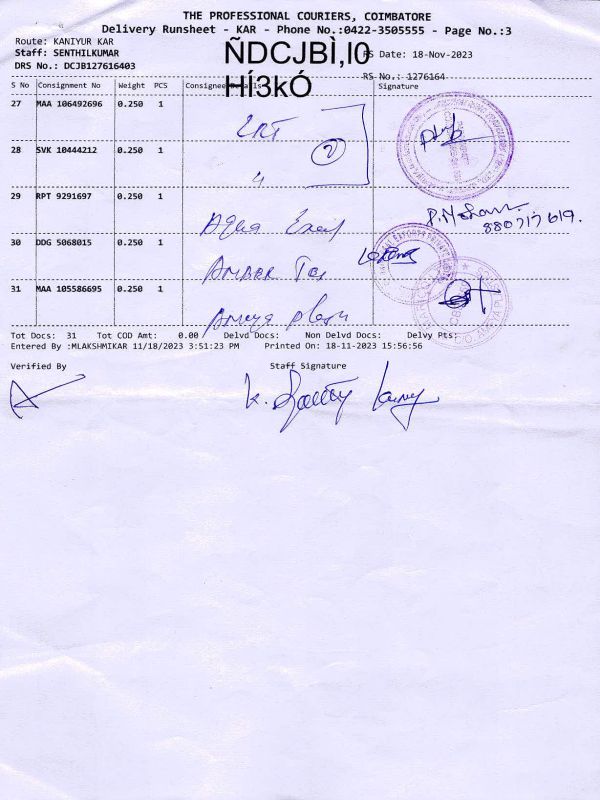 THE PROFESSIONAL COURIERS, COIMBATORE
Delivery Runsheet - KAR - Phone No.:0422-3505555 - Page No.:3
Route: KANIYUR KAR
Staff: SENTHILKUMAR
DRS No.: DCJB127616403
ÑDCJBÌ,I0
HÍ3kÓ
RS Date: 18-Nov-2023
RS No.: 1276164
S No Consignment No Weight PCS Consignee Details Signature
27 MAA 106492696 0.250 1
28 SVK 10444212 0.250 1
2
29 RPT 9291697 0.250 1 Aqua
880717619.
30 DDG 5068015 0.250 1 Amber
31 MAA 105586695 0.250 1
Tot Docs: 31 Tot COD Amt: 0.00 Delvd Docs: Non Delvd Docs: Delvy Pts:
Entered By :MLAKSHMIKAR 11/18/2023 3:51:23 PM Printed On: 18-11-2023 15:56:56
Verified By Staff Signature